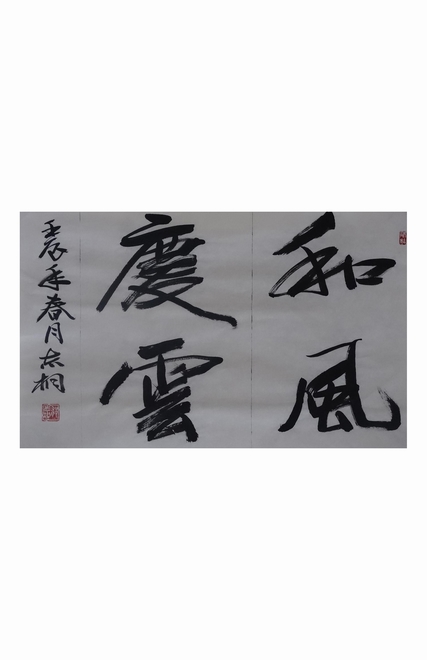 和風
慶雲
壬辰年春月志桐